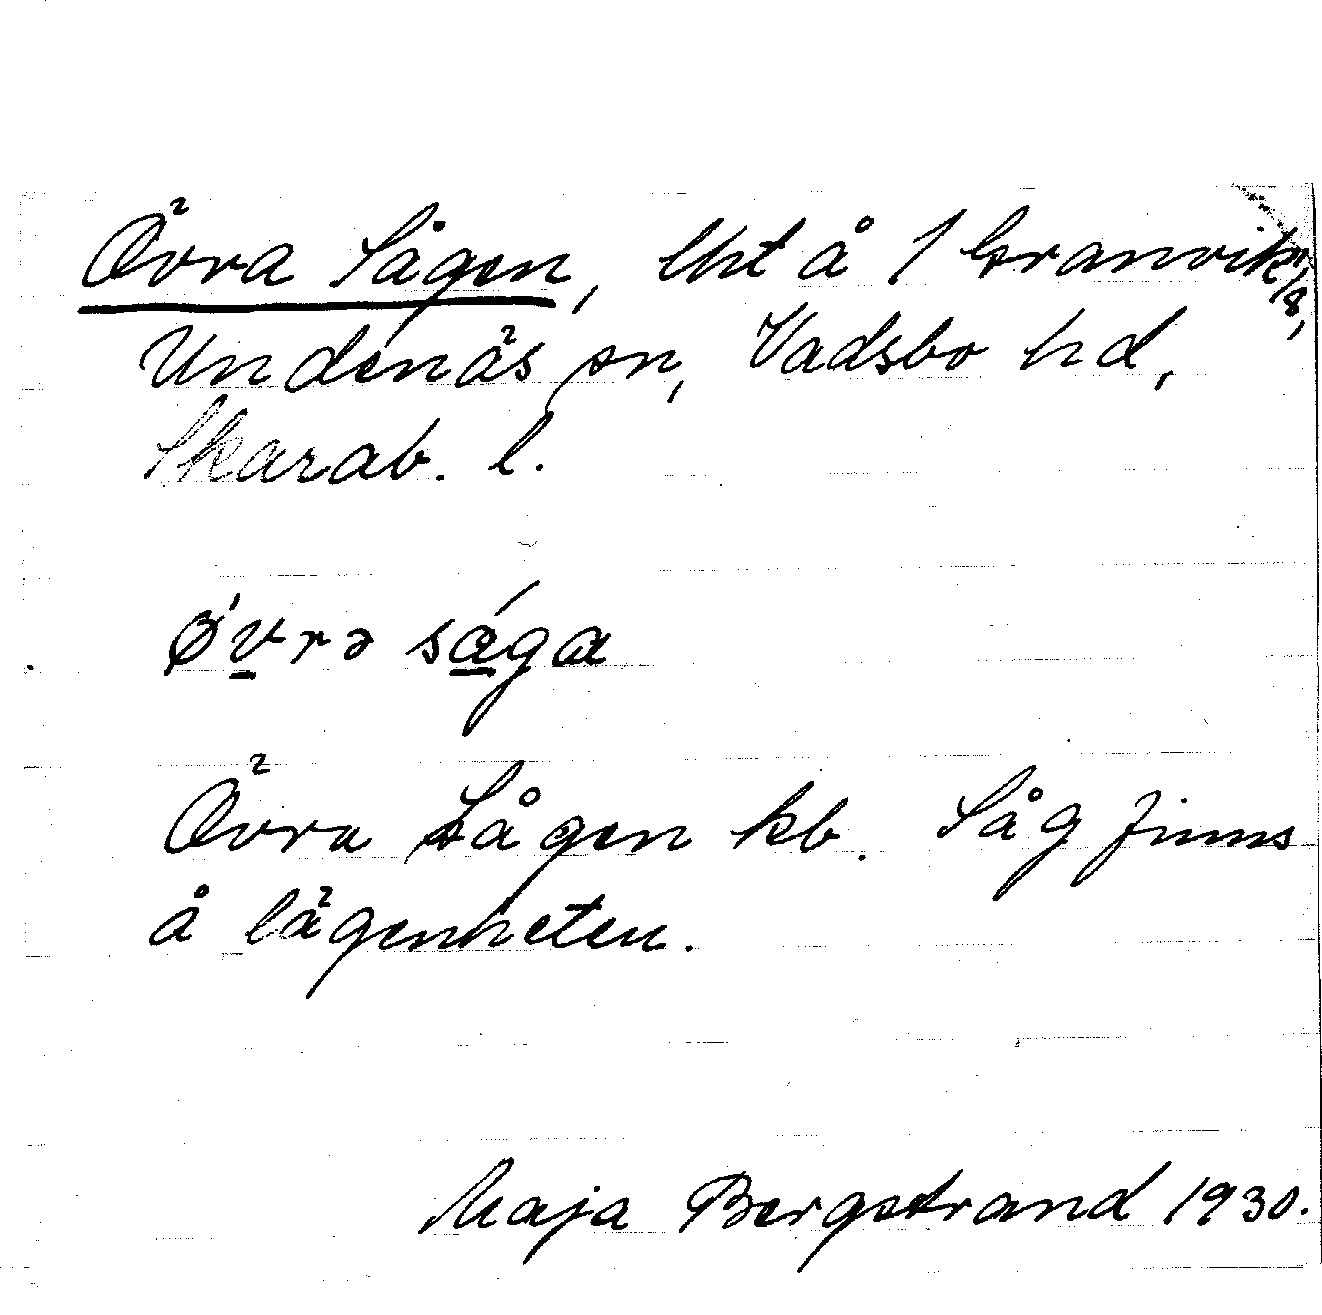 Övra Sågen, lht å 1 Granvik 1/8,
Undenäs sn, Vadsbo hd,
Skarab. l.
ǿvrə sága
Övra Sågen kb. Såg finns
å lägenheten.
Maja Bergstrand 1930.